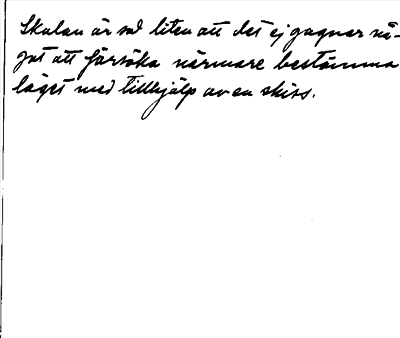 Skalan är så liten att det ej gagnar nå-
got att försöka närmare bestämma
läget med tillhjälp av en skiss.